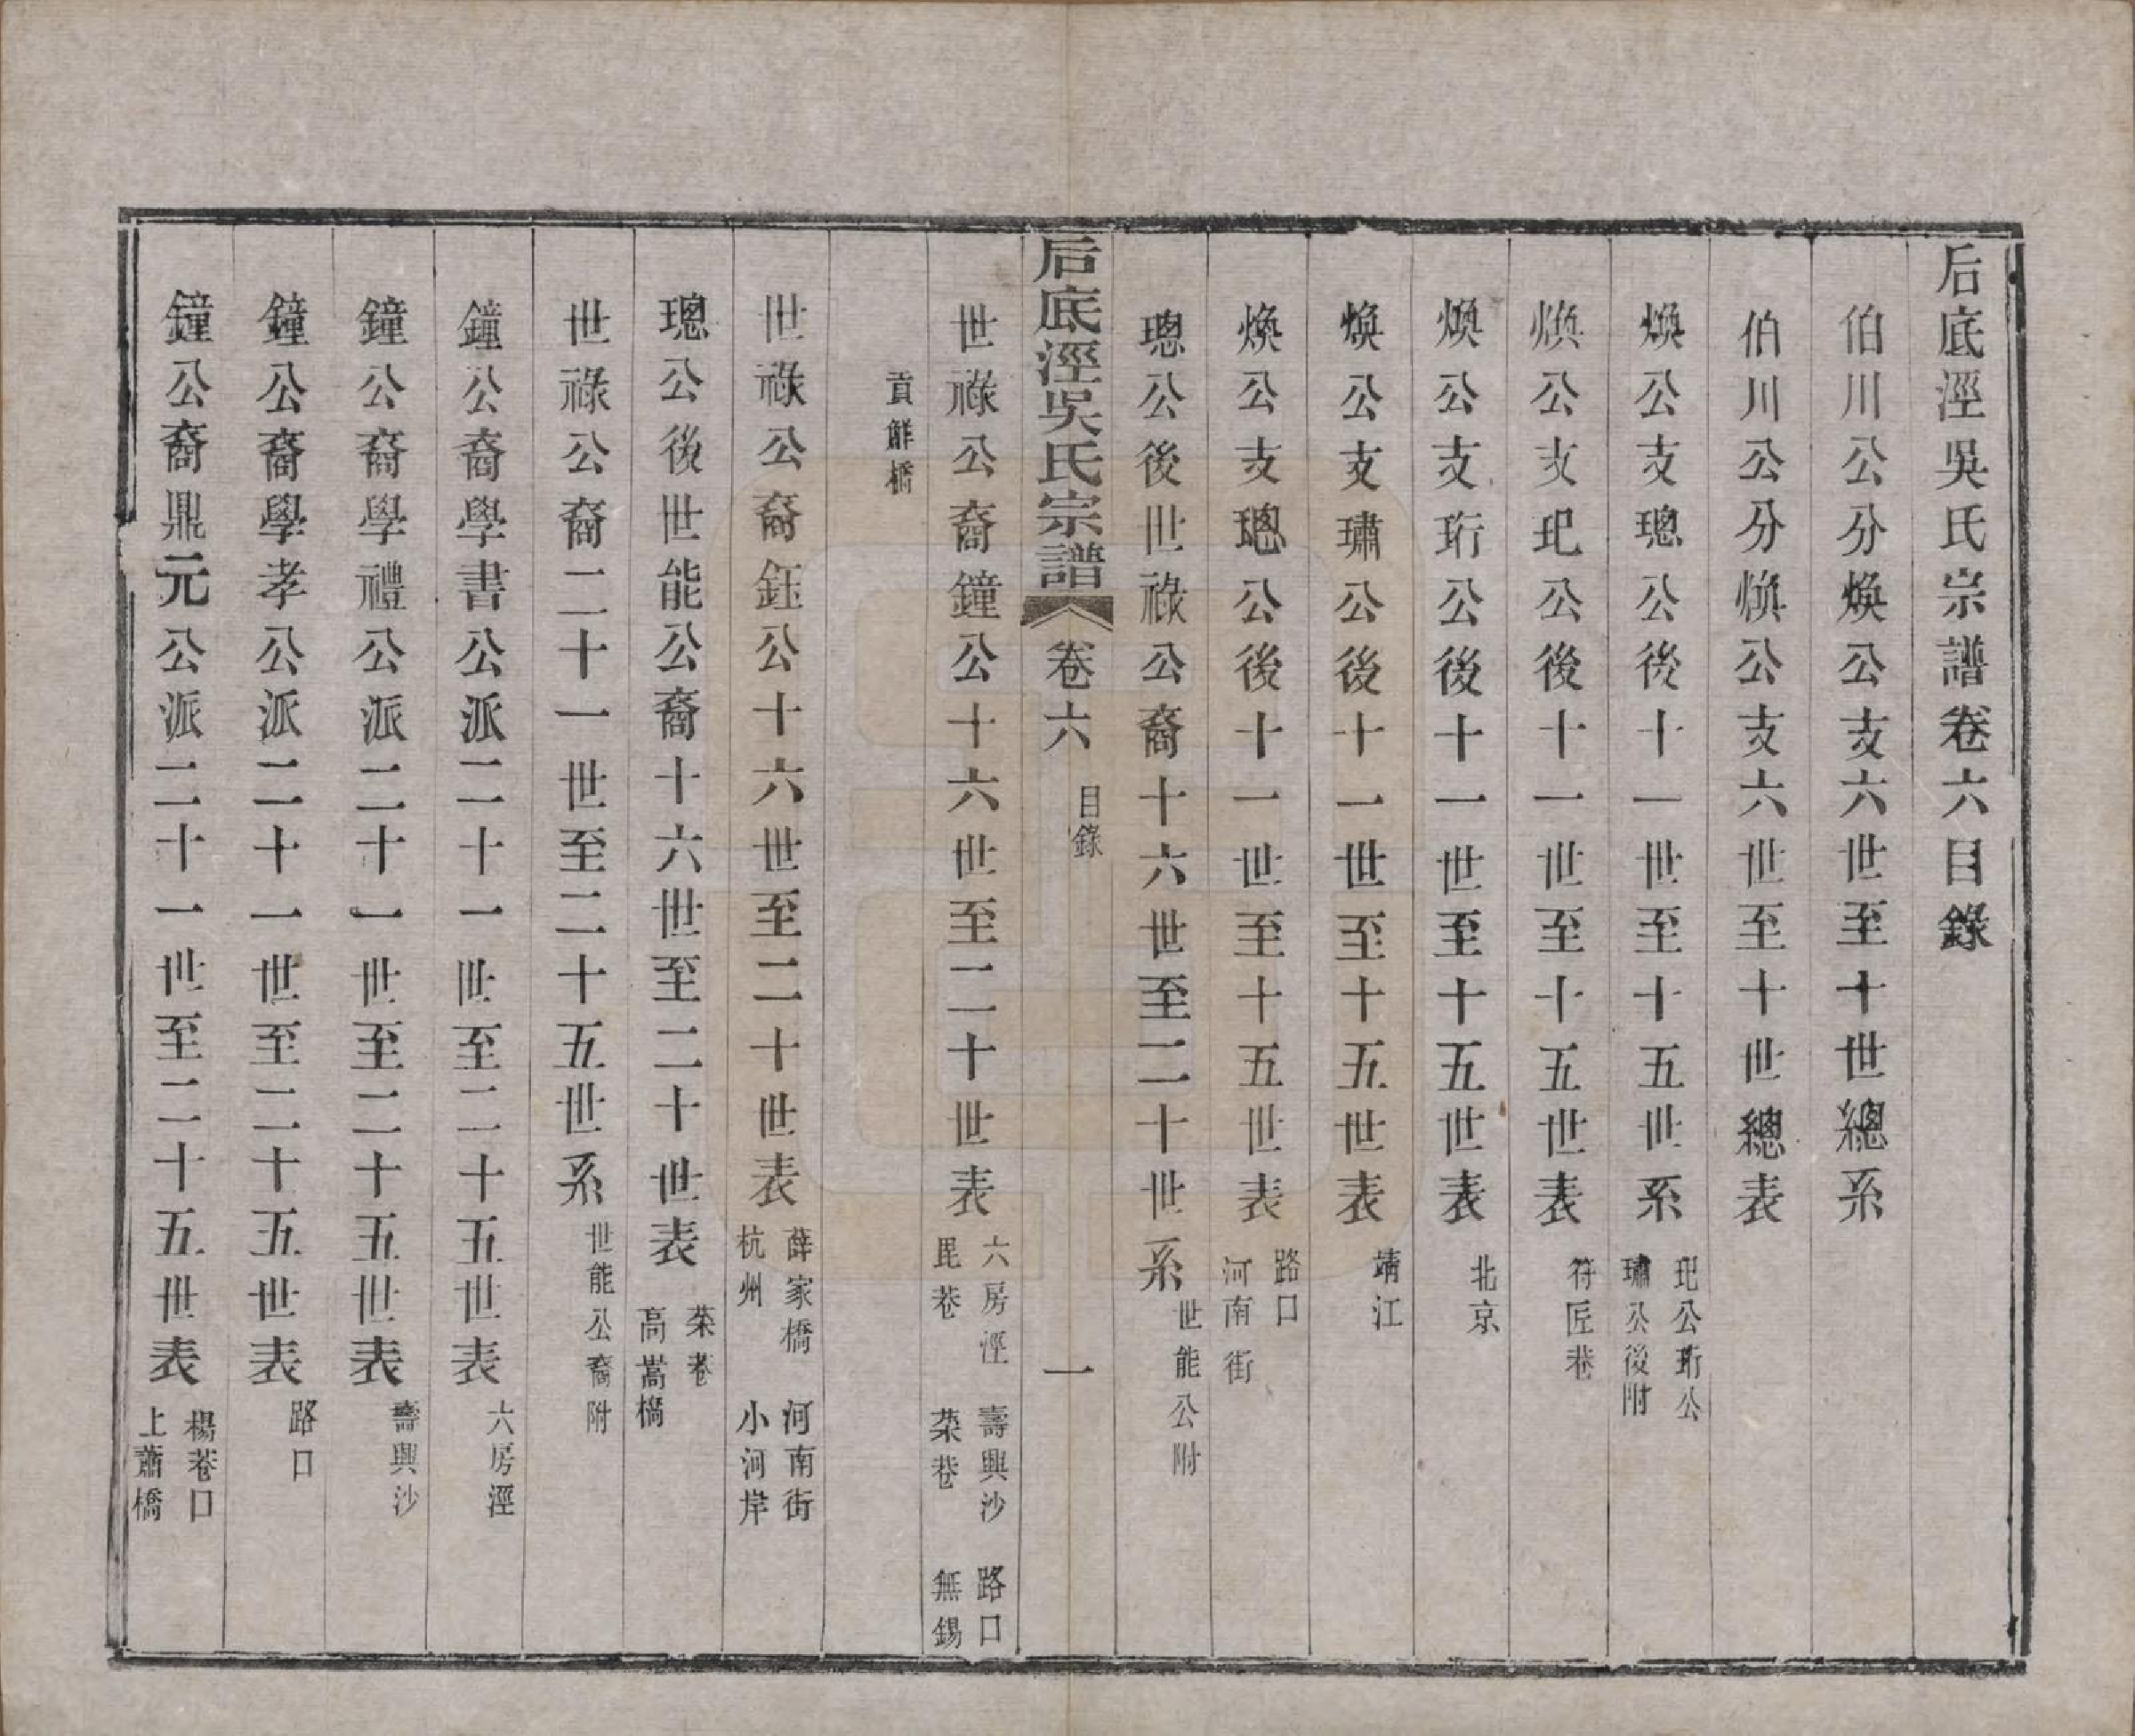 后底涇吳氏宗譜卷六目錄
伯川公分煥公支六世至十世總系
伯川公分煥公支六世至十世總表
煥公支璁公後十一世至十五世系 玘公珩公 璛公後附
煥公支玘公後十一世至十五世表 符匠巷
煥公支珩公後十一世至十五世表 北京
煥公支璛公後十一世至十五世表 靖江
煥公支璁公後十一世至十五世表 路口 河南街
璁公後世祿公裔十六世至二十世系 世能公附
后底涇吳氏宗譜 卷六 目錄 一
世祿公裔鐘公十六世至二十世表 六房涇 壽興沙 路口 毘巷 菜巷 無錫
貢鮮橋
世祿公裔鈺公十六世至二十世表 薛家橋 河南街 杭州 小河岸
璁公後世能公裔十六世至二十世表 菜巷 高嵩橋
世祿公裔二十一世至二十五世系 世能公裔附
鐘公裔學書公派二十一世至二十五世表 六房涇
鐘公裔學禮公派二十一世至二十五世表 壽興沙
鐘公裔學孝公派二十一世至二十五世表 路口
鐘公裔鼎元公派二十一世至二十五世表 楊巷口 上蕭橋